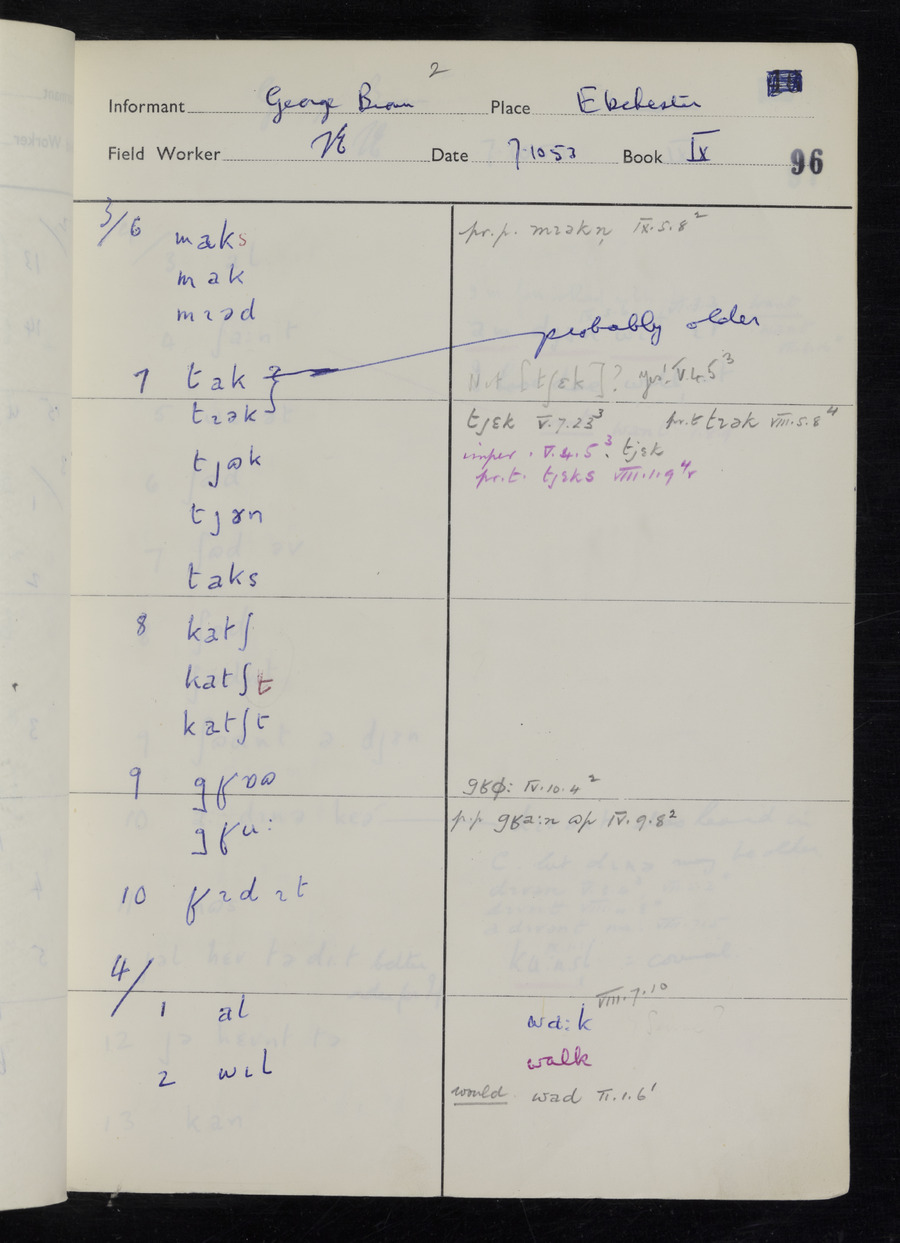 2
Informant George Brown Place Ebchester
Field Worker Date 7·10·53 Book IX
96
3/6 maks pr.p. mɪəkn̩ IX.5.8²
mak
mɪəd
probably older
7 tak Not [tjɛk]? V.4.5³
tɪək tjɛk V.7.23³ pr.t tɪək VIII.5.8⁴
tjək imper. V.4.5³: tjɛk
pr.t. tjɛks VIII.1.9⁴
tjən
taks
8 katʃ
katʃt
katʃt
9 gʁøː IV.10.4²
gʁuː p.p. IV.9.8²
10
4/
1 al waːk VIII.7.10
walk
2 wɪl
would wad II.1.6¹